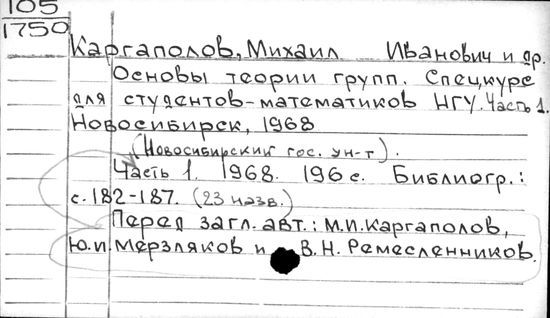 105
1750
Каргаполов, Михаил Иванович и др.
Основы теории групп. Спецкурс
для студентов-математиков НГУ. Часть 1.
Новосибирск, 1968
(Новосибирский гос. ун-т).
Часть 1. 1968. 196 с. Библиогр.:
с. 182-187. (23 назв.)
Перед загл. авт.: М.И. Каргаполов,
Ю.И. Мерзляков и В.Н. Ремесленников.